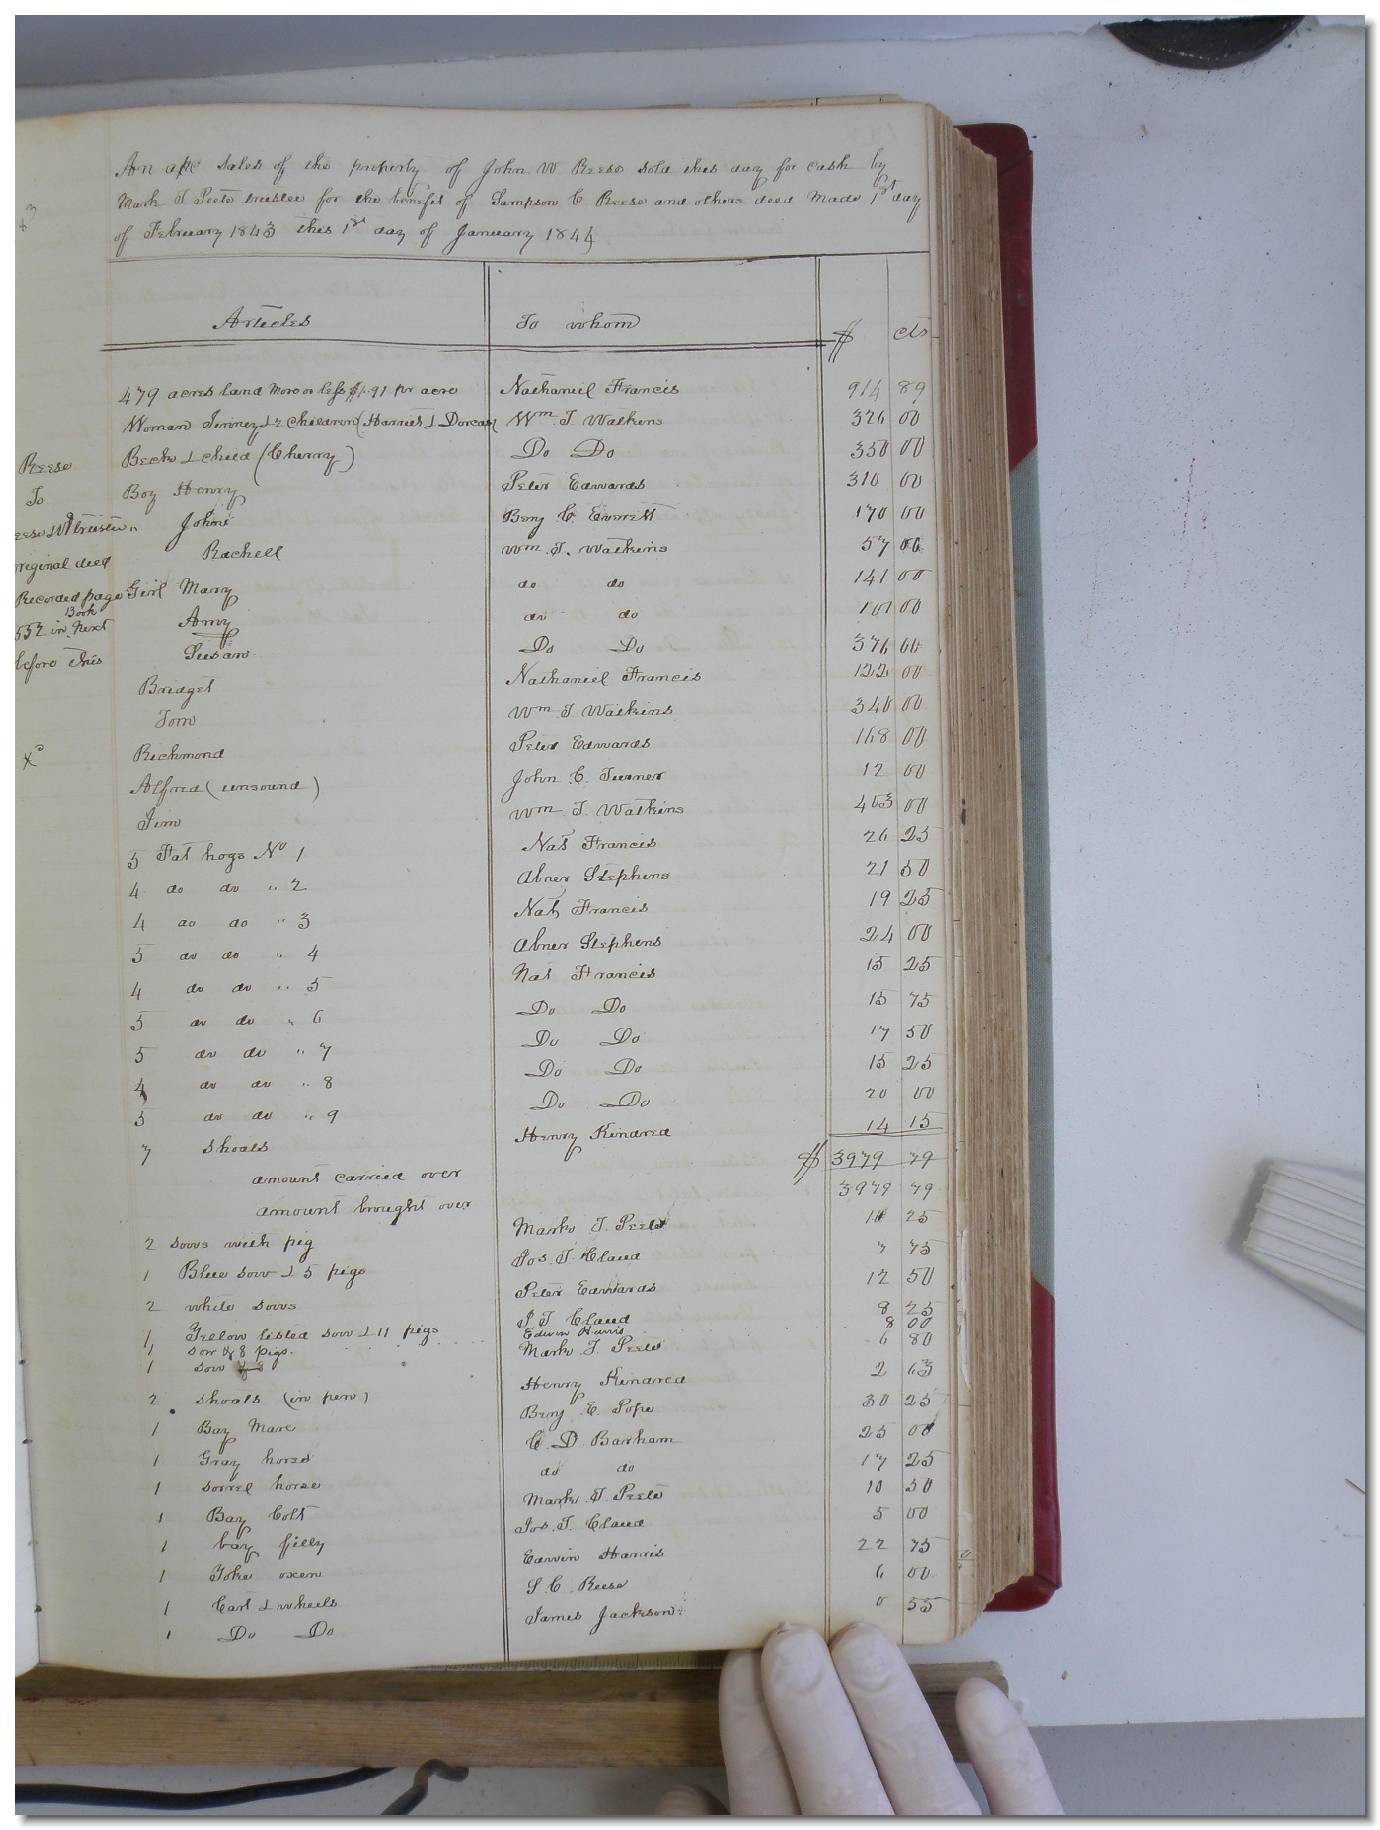 An a/c sales of the property of John W Reese sold this day for cash by
Mark T Peete trustee for the benefit of Sampson C Reese and others deed Made 1st day
of February 1843 this 1st day of January 1844
Articles To whom $ cts
479 acres land more or less $1.91 pr acre Nathaniel Francis 914 89
Woman Jinney & 2 children (Harriet & Dorcas) Wm. T. Watkins 326 00
Beck & child (Cherry) Do Do 350 00
Boy Henry Peter Edwards 310 00
John Benj C. Everett 170 00
Rachell Wm. T. Watkins 57 00
Girl Mary do do 141 00
Amy do do 101 00
Susan Do Do 376 00
Bridget Nathaniel Francis 122 00
Tom Wm. T. Watkins 340 00
Richmond Peter Edwards 168 00
Alfred (unsound) John C. Turner 12 00
Jim Wm. T. Watkins 403 00
5 Fat hogs No 1 Nat Francis 26 25
4 do do " 2 Abner Stephens 21 50
4 do do " 3 Nat Francis 19 25
5 do do " 4 Abner Stephens 24 00
4 do do " 5 Nat Francis 15 25
5 do do " 6 Do Do 15 75
5 do do " 7 Do Do 17 50
4 do do " 8 Do Do 15 25
5 do do " 9 Do Do 20 00
7 Shoats Henry Kindred 14 15
amount carried over $ 3979 79
amount brought over 3979 79
2 sows with pig Mark T. Peete 10 25
1 Blue sow & 5 pigs Jos. T. Claud 7 75
2 white sows Peter Edwards 12 50
1 Yellow listed sow & 11 pigs J T Claud 8 25
1 sow & 8 pigs. Edwin Harris 8 00
1 sow Mark T. Peete 6 80
2 shoats (in pen) Henry Kindred 2 63
1 Bay Mare Benj E. Pope 30 25
1 Gray horse C. D Barham 25 00
1 sorrel horse do do 17 25
1 Bay Colt Mark T. Peete 10 50
1 bay filly Jos. T. Claud 5 00
1 Yoke oxen Edwin Harris 22 75
1 Cart & wheels S. C. Reese 6 00
1 Do Do James Jackson 0 55
Reese
To
trustee
original deed
Recorded page
Book
552 in Next
before this